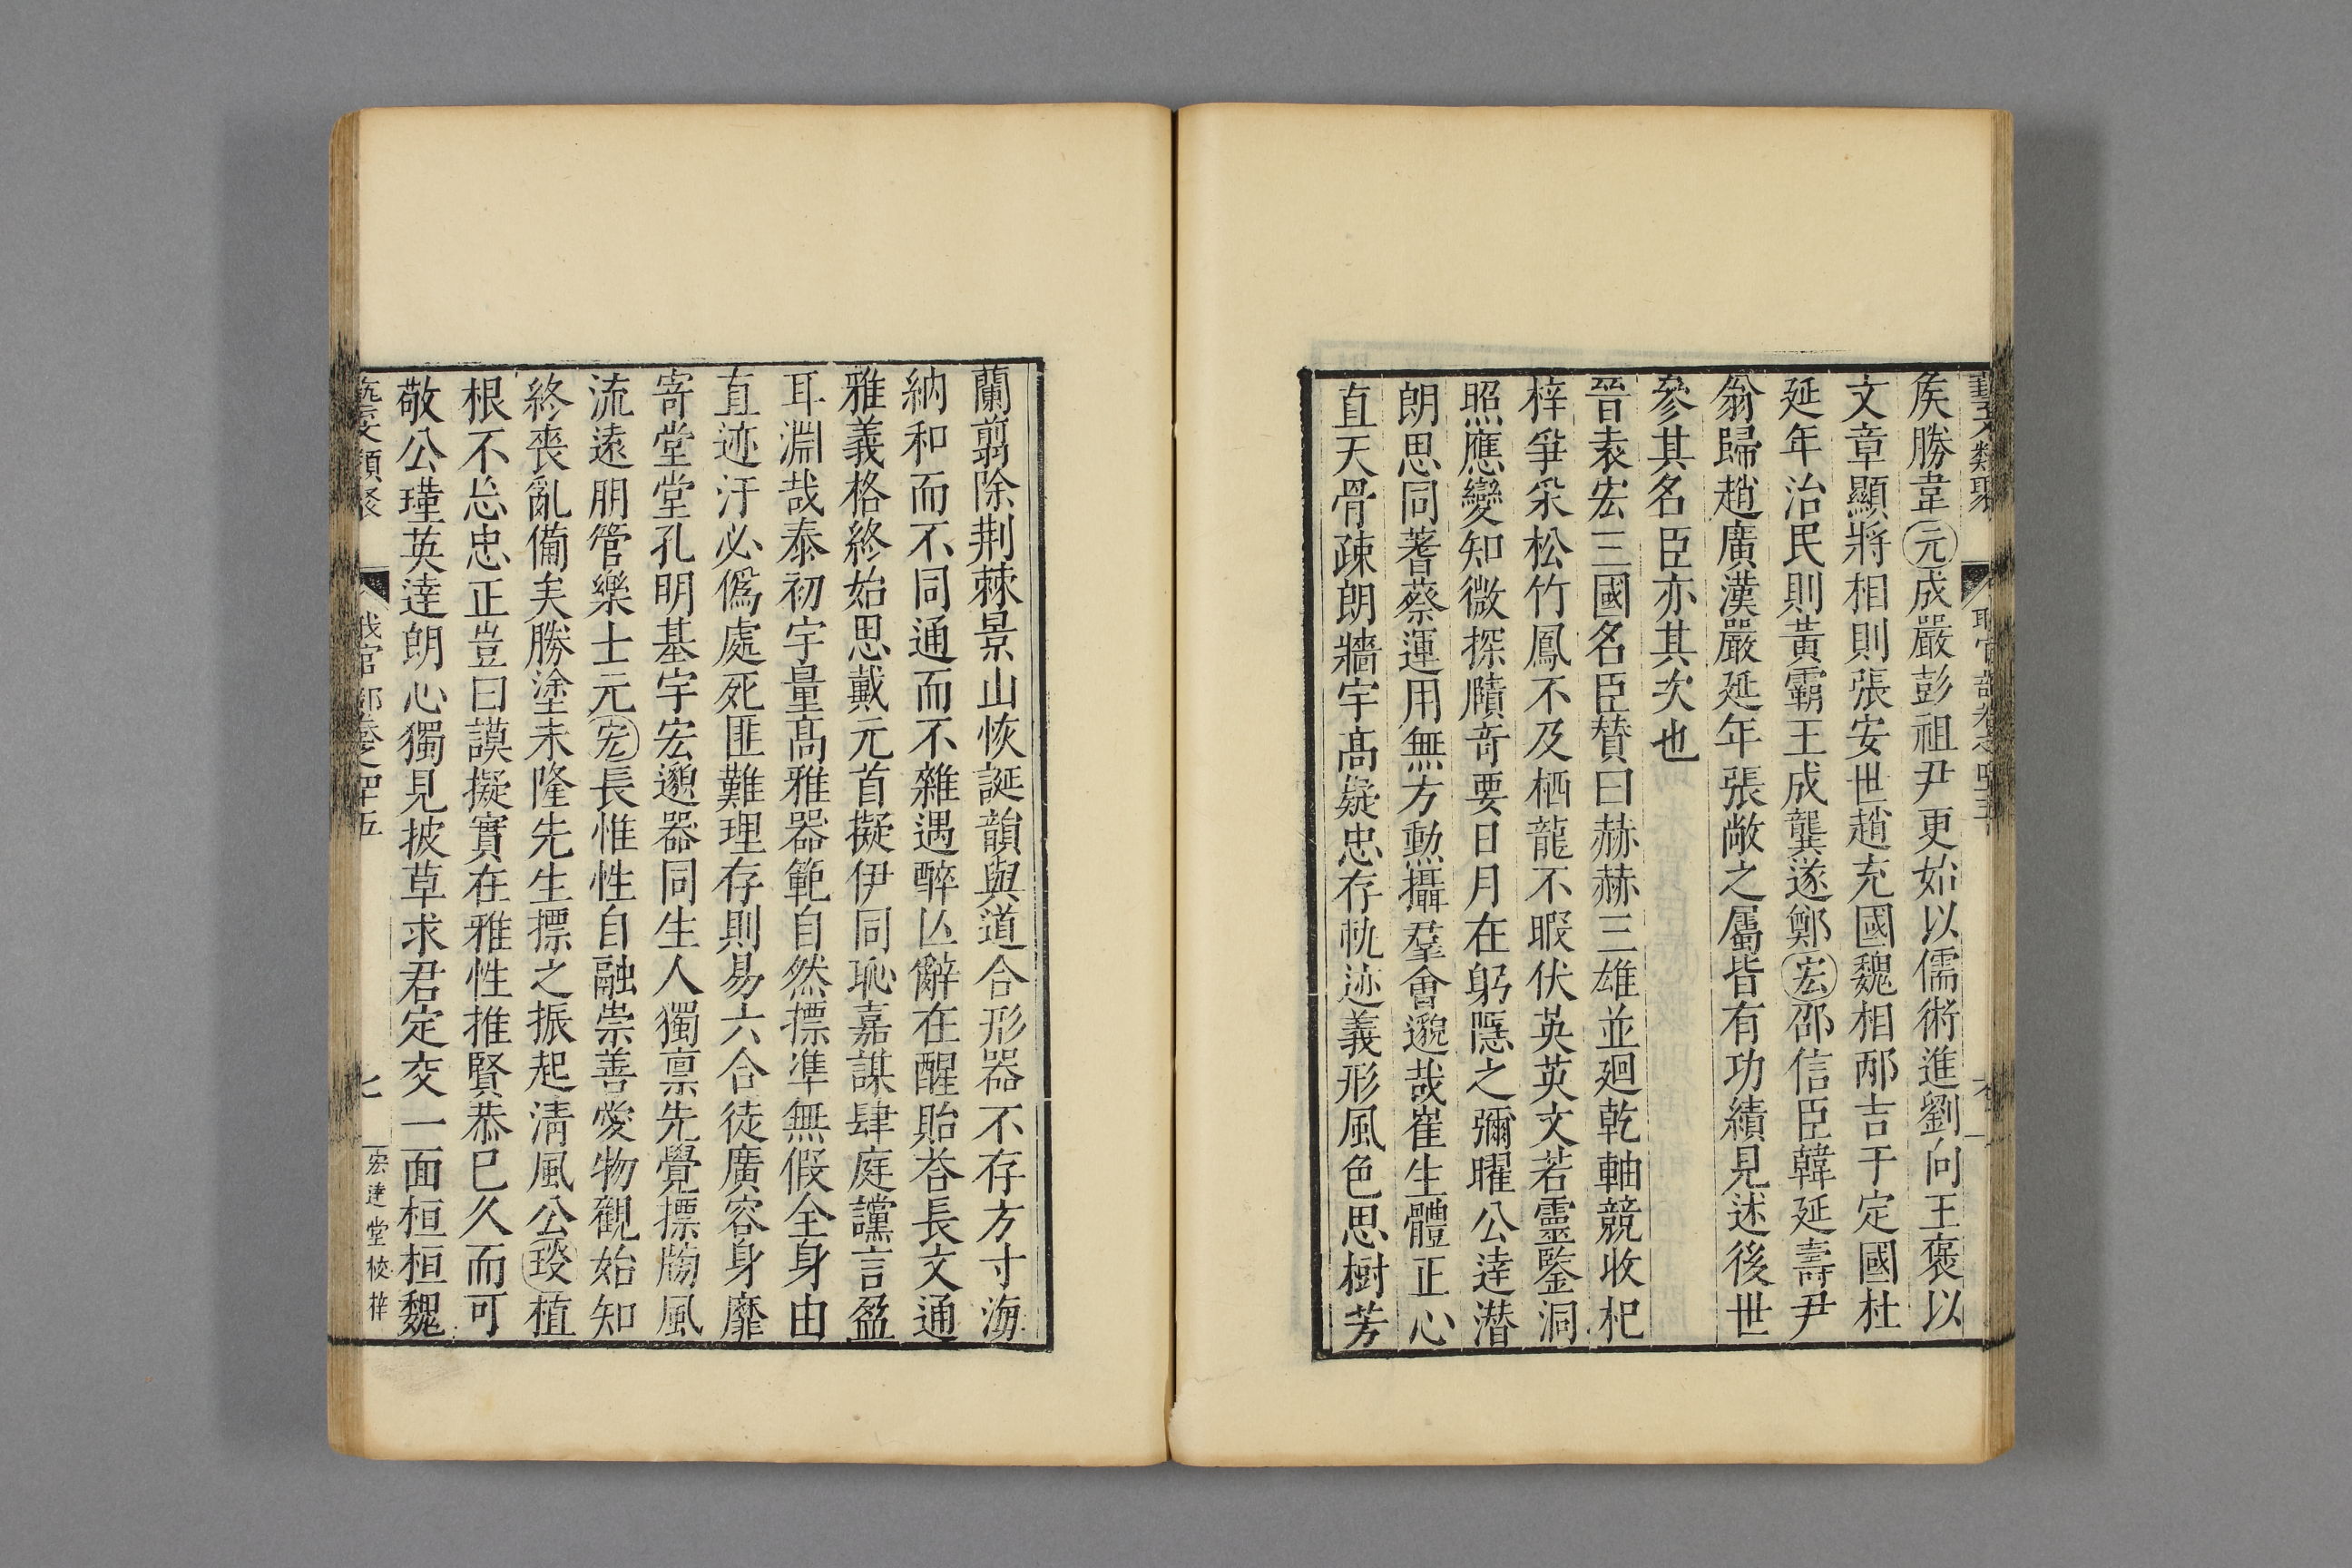 藝文類聚 職官部卷之四十五
矦勝韋元成嚴彭祖尹更始以儒術進劉向王褒以
文章顯將相則張安世趙充國魏相邴吉于定國杜
延年治民則黃霸王成龔遂鄭宏邵信臣韓延壽尹
翁歸趙廣漢嚴延年張敞之屬皆有功績見述後世
參其名臣亦其次也
晉袁宏三國名臣贊曰赫赫三雄並廻乾軸競收杞
梓爭采松竹鳳不及栖龍不暇伏英英文若靈鑒洞
照應變知微探賾竒要日月在躬隱之彌曜公達潛
朗思同蓍蔡運用無方動攝羣會邈哉崔生體正心
直天骨疎朗牆宇髙嶷忠存軌迹義形風色思樹芳
蘭翦除荆棘景山恢誕韻與道合形器不存方寸海
納和而不同通而不雜遇醉亾辭在醒貽荅長文通
雅義格終始思戴元首擬伊同恥嘉謀肆庭讜言盈
耳淵哉泰初宇量髙雅器範自然摽凖無假全身由
直迹汙必僞處死匪難理存則易六合徒廣容身靡
寄堂堂孔明基宇宏邈器同生人獨禀先覺摽牓風
流遠朋管樂士元宏長惟性自融崇善愛物觀始知
終喪亂備矣勝塗未隆先生摽之振起清風公琰植
根不㤀忠正豈曰謨擬實在雅性推賢恭巳久而可
敬公瑾英達朗心獨見披草求君定交一面桓桓魏
藝文類聚 職官部卷之四十五 七 宏達堂校梓